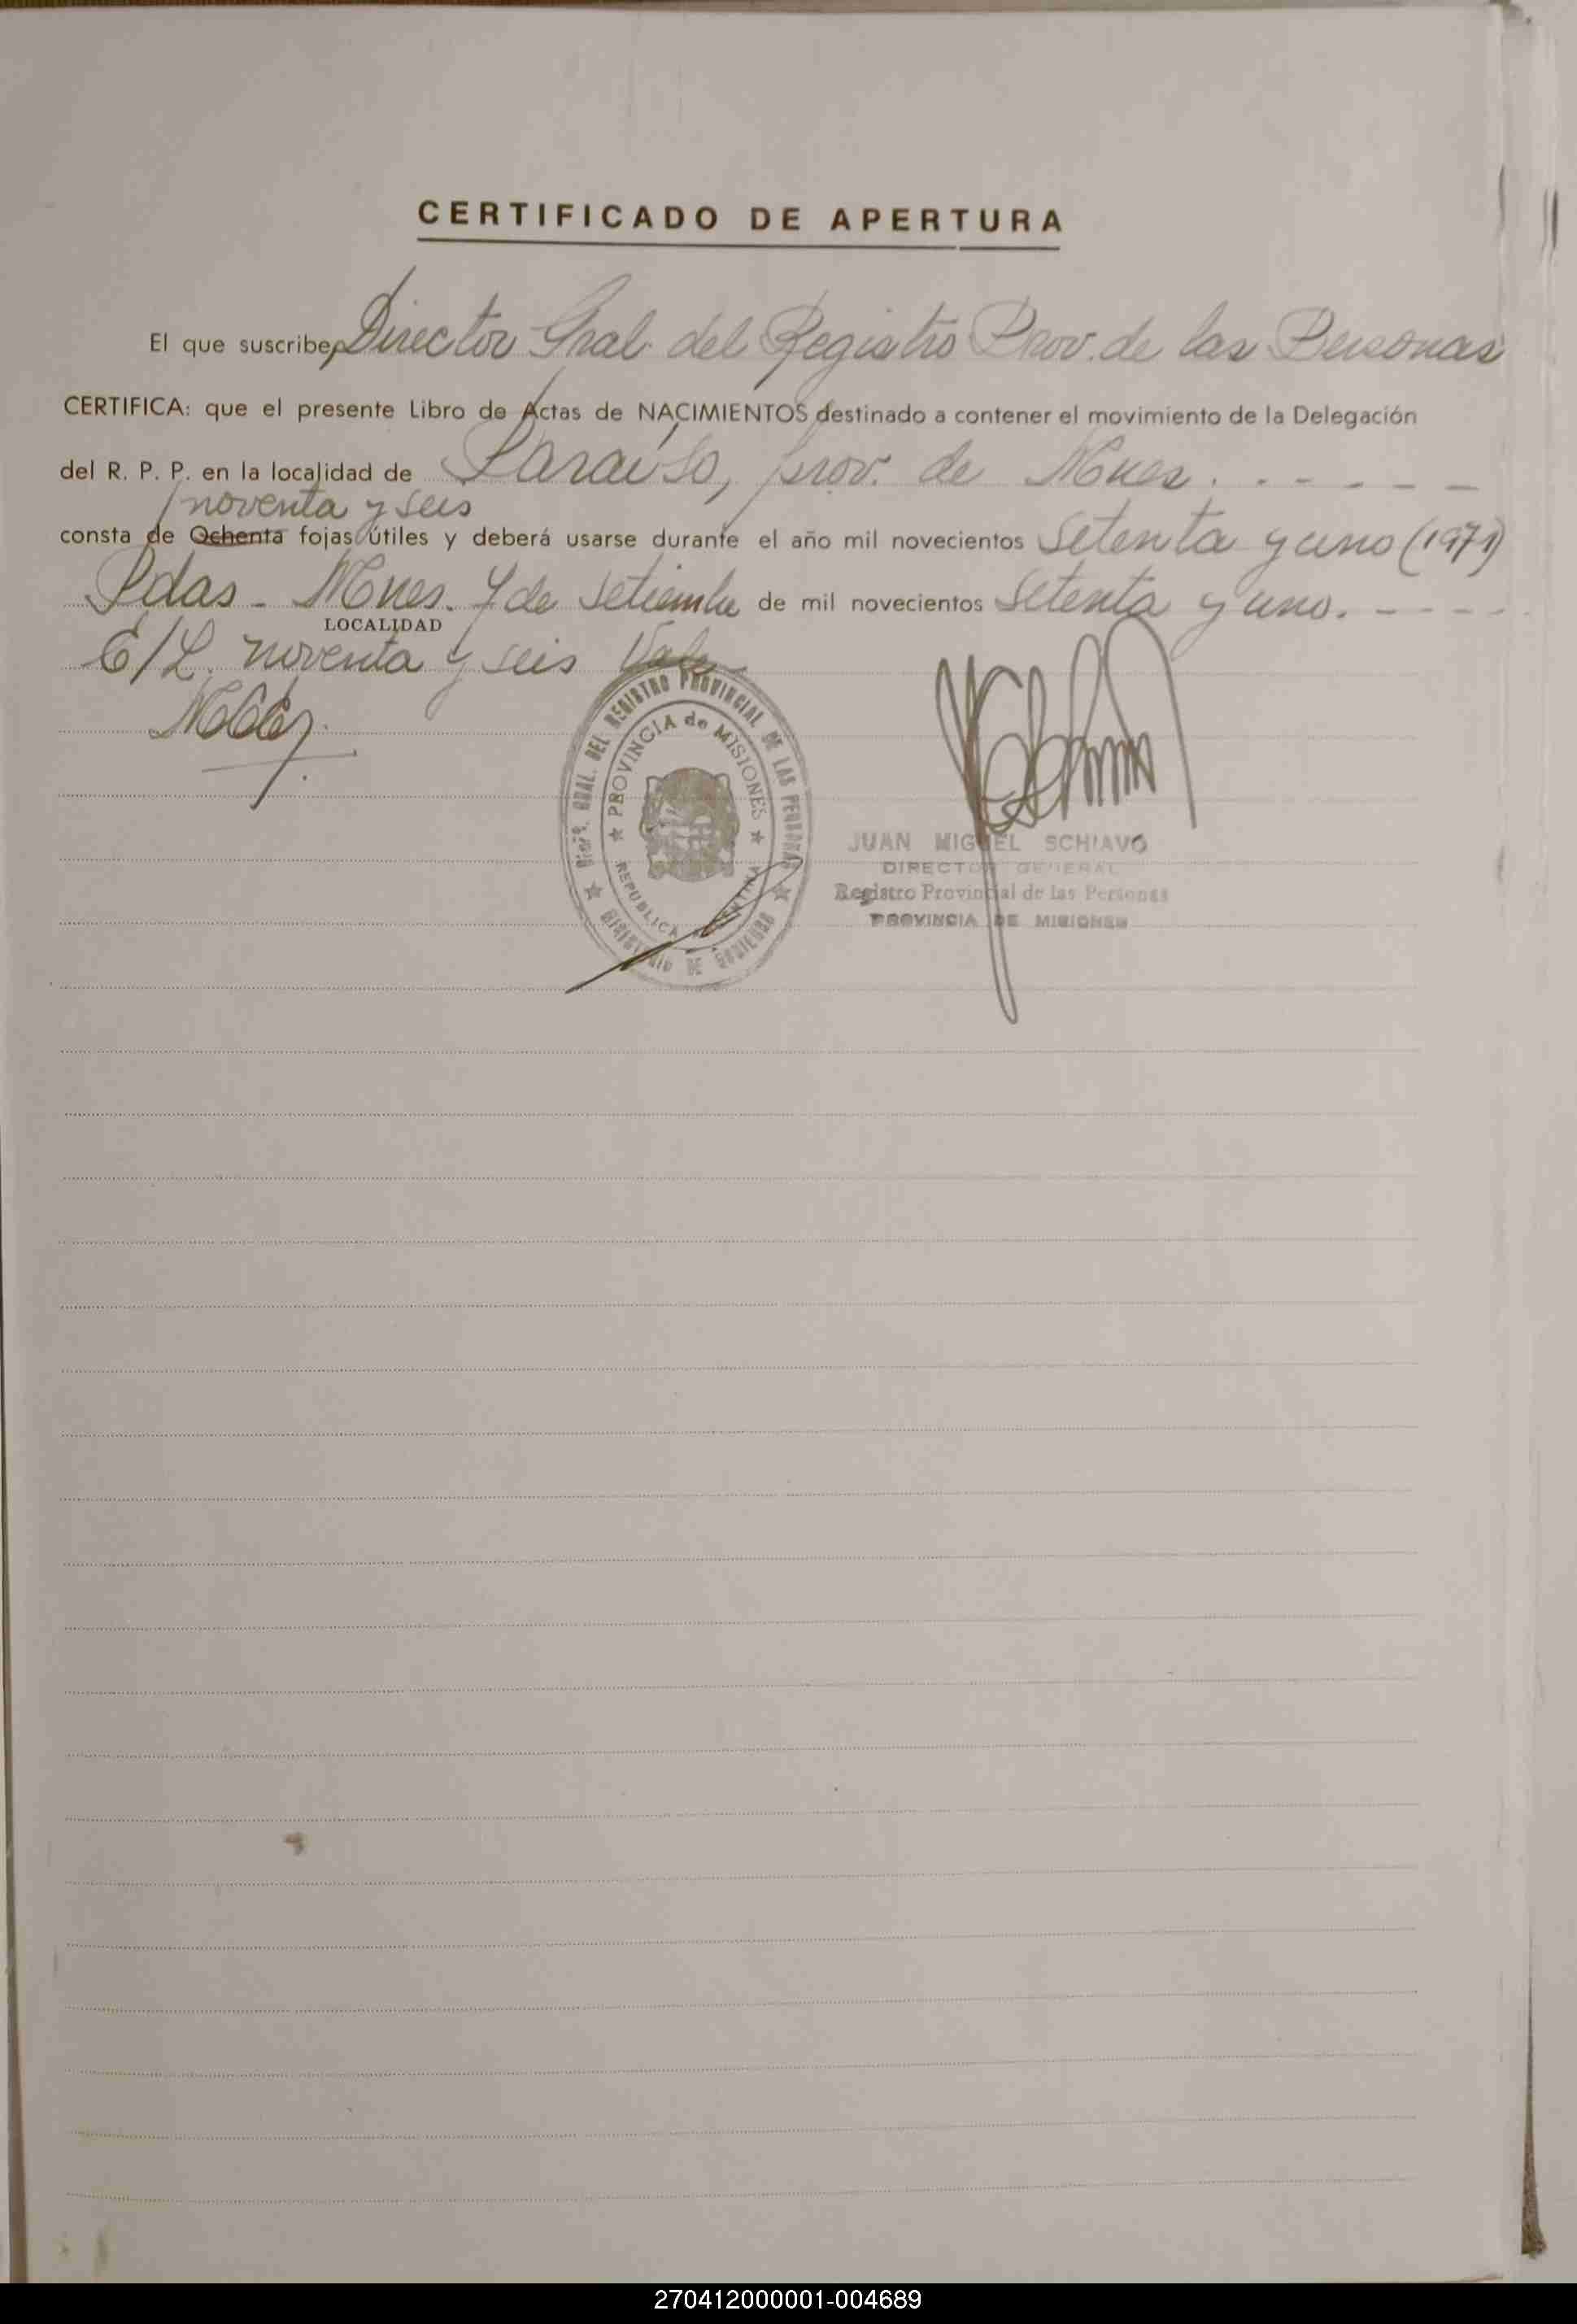 CERTIFICADO DE APERTURA
El que suscribe, Director Gral. del Registro Prov. de las Personas
CERTIFICA: que el presente Libro de Actas de NACIMIENTOS destinado a contener el movimiento de la Delegación
del R. P. P. en la localidad de Paraíso, prov. de Mnes. - - - - - -
noventa y seis
consta de Ochenta fojas útiles y deberá usarse durante el año mil novecientos setenta y uno (1971)
Pdas - Mnes. 7 de setiembre de mil novecientos setenta y uno. - - - -
LOCALIDAD
E/L. noventa y seis Vale
DIREC. GRAL. DEL REGISTRO PROVINCIAL DE LAS PERSONAS
PROVINCIA de MISIONES
REPUBLICA ARGENTINA
MINISTERIO DE GOBIERNO
JUAN MIGUEL SCHIAVO
DIRECTOR GENERAL
Registro Provincial de las Personas
PROVINCIA DE MISIONES
270412000001-004689